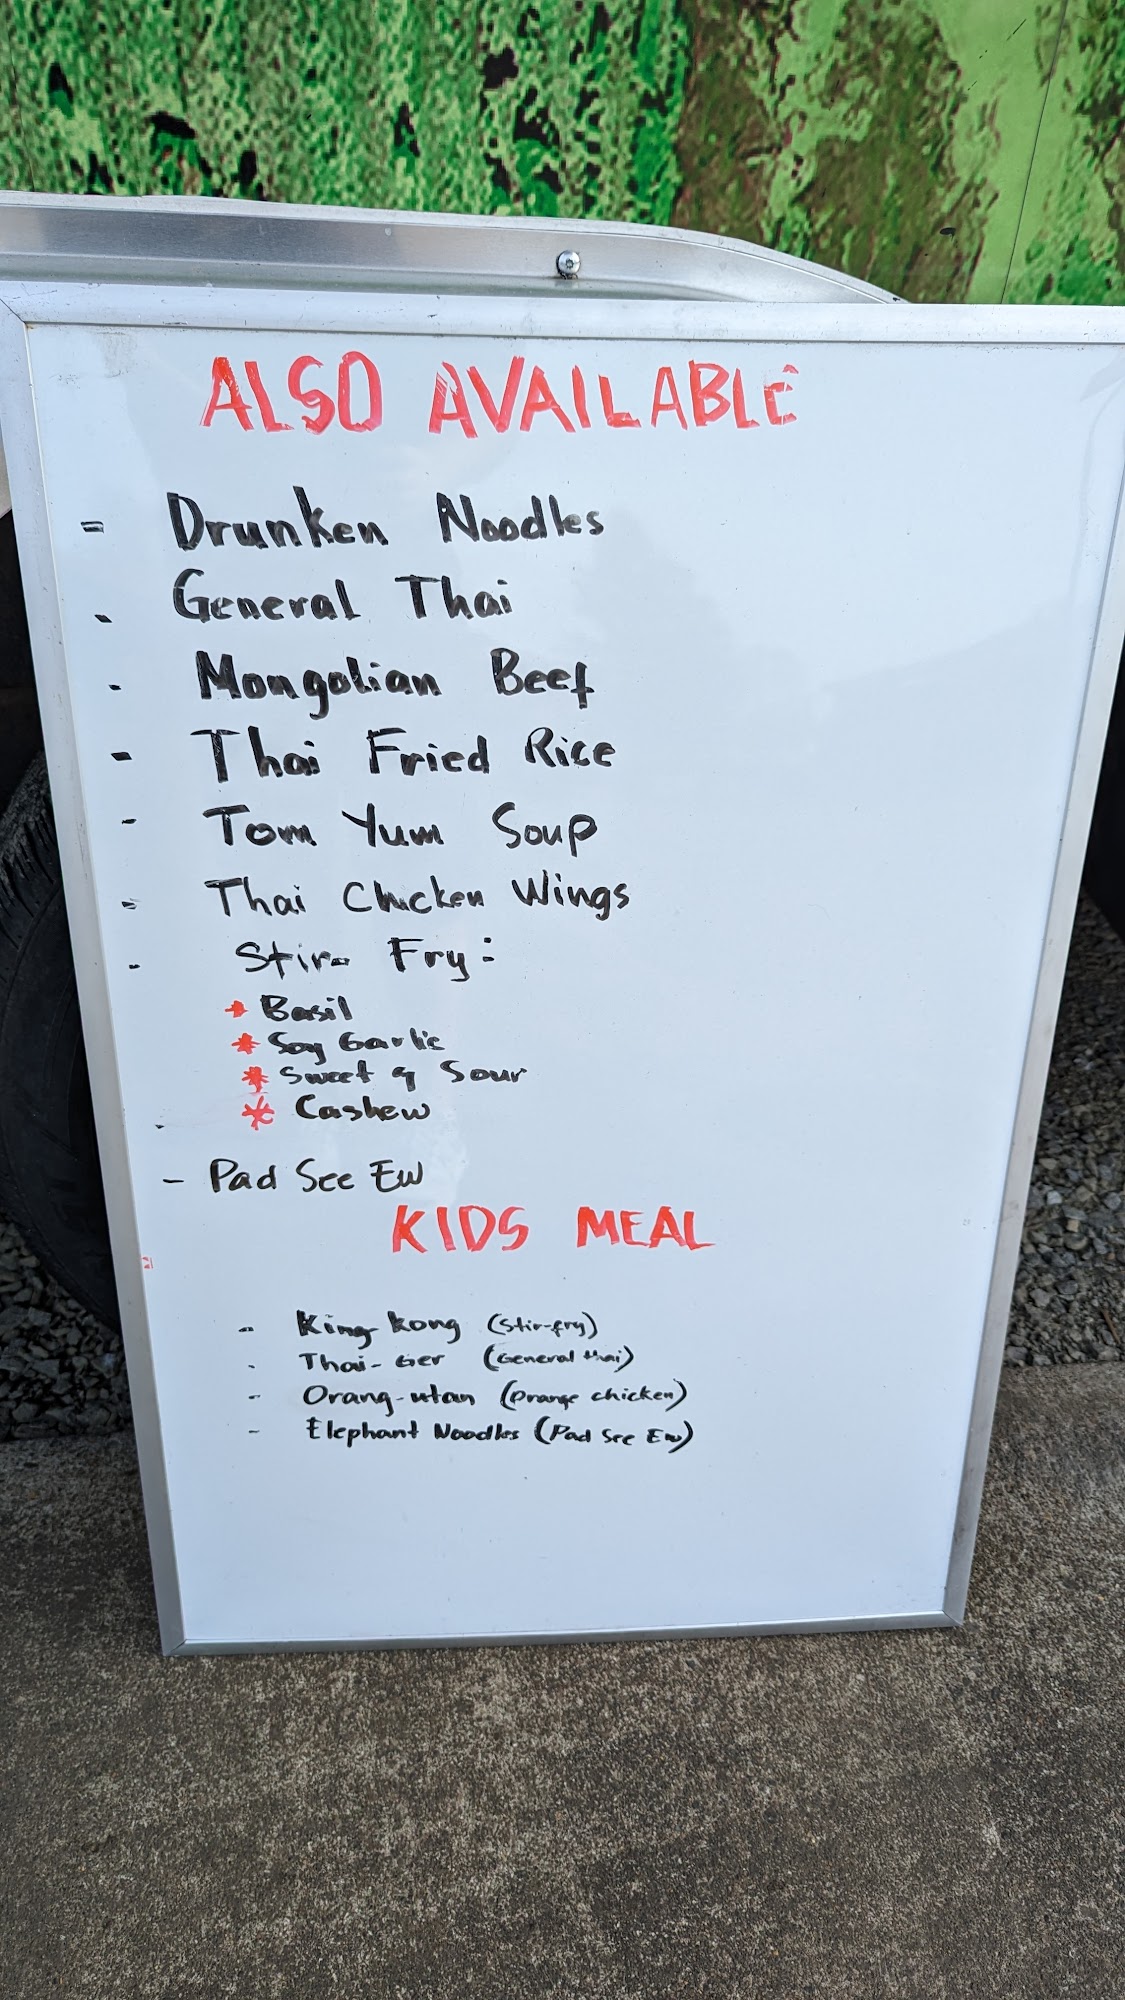 ALSO AVAILABLE
= Drunken Noodles
- General Thai
- Mongolian Beef
- Thai Fried Rice
- Tom Yum Soup
- Thai Chicken Wings
- Stir- Fry:
* Basil
* Soy Garlic
* Sweet & Sour
* Cashew
- Pad See Ew
KIDS MEAL
- King-Kong (Stir-fry)
- Thai-Ger (General thai)
- Orang-utan (Orange chicken)
- Elephant Noodles (Pad See Ew)